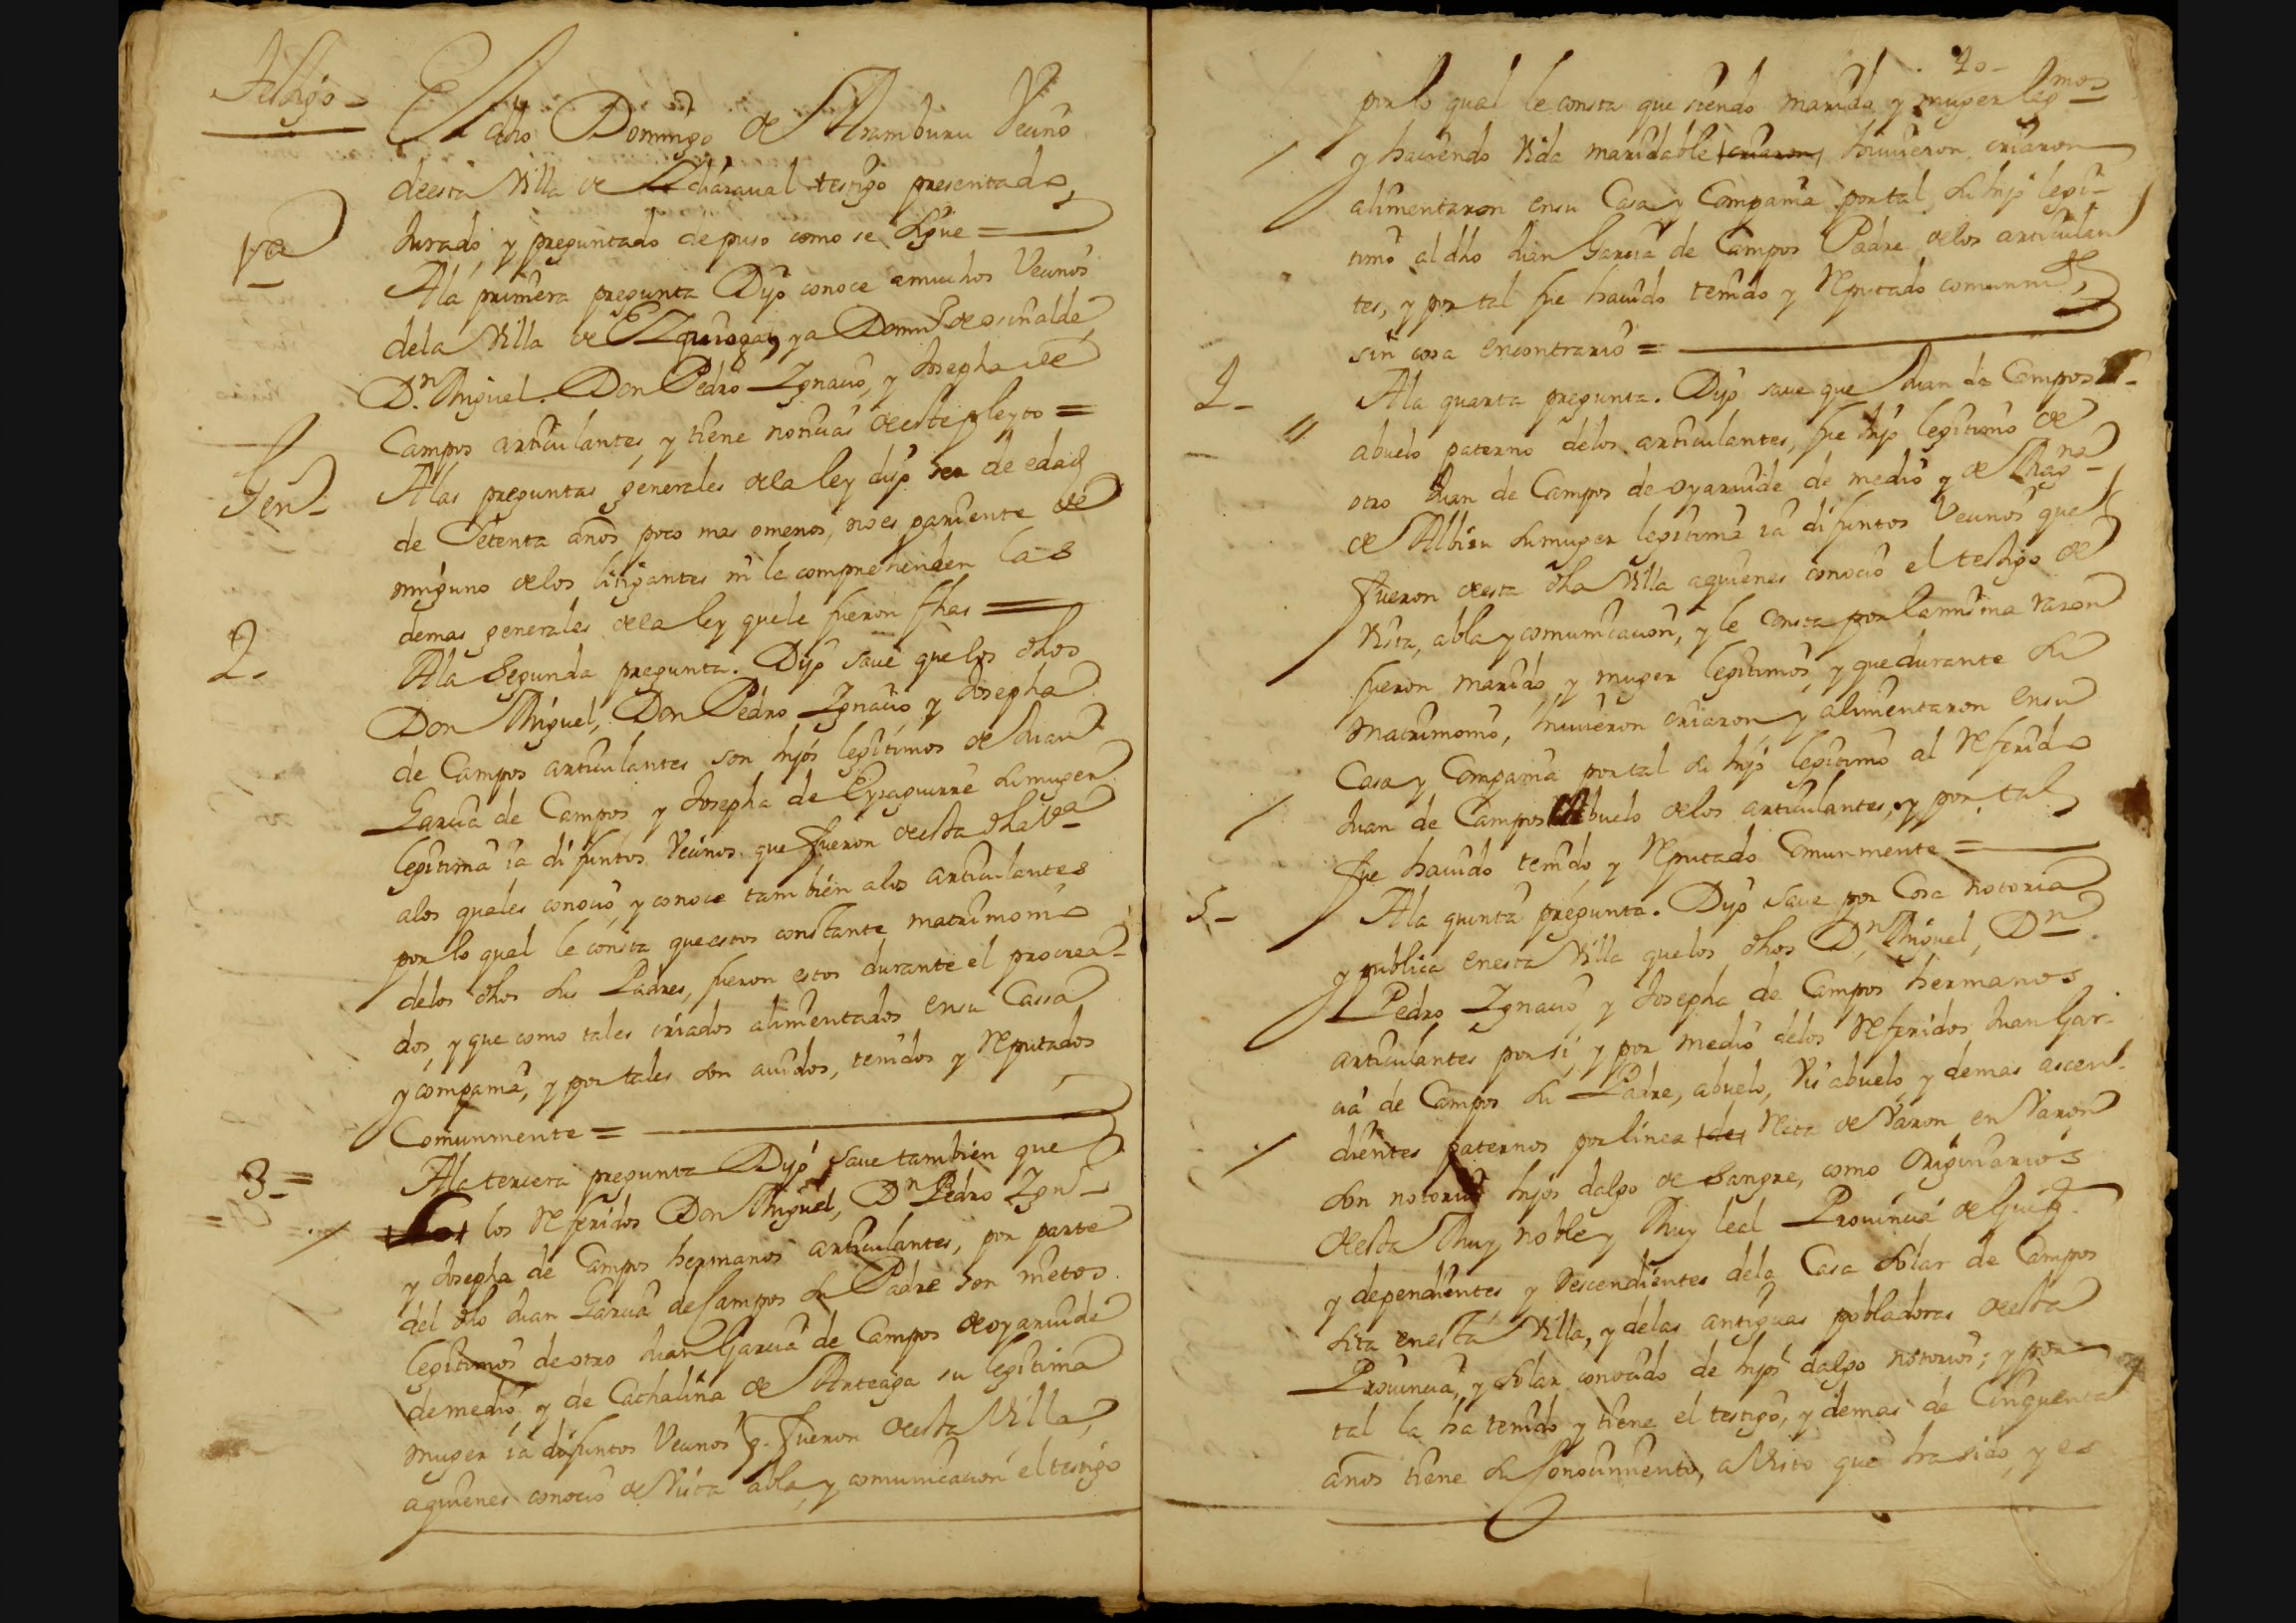 Testigo
El dho Domingo de Aramburu Vecino
de esta Villa de Villarreal testigo presentado,
Jurado, y preguntado depuso como se sigue =
1ª
Ala primera pregunta Dijo conoce amuchos Vecinos
dela Villa de Ezquioga, y a Domin.º de
D.n Miguel. Don Pedro Ignacio, y Josepha de
Campos articulantes, y tiene noticias deeste pleyto =
Gen.
Alas preguntas generales dela ley dijo ser de edad
de Setenta años poco mas omenos, noes pariente de
ninguno delos litigantes ni le comprehenden las
demas generales dela ley quele fueron fhas =
2.
Ala Segunda pregunta. Dijo save que los dhos
Don Miguel, Don Pedro Ignacio y Josepha
de Campos articulantes son hijos legitimos de Juan
Garcia de Campos, y Josepha de Eyzaguirre su muger
legitima ia difuntos Vecinos que fueron deesta dha V.ª
alos quales conocio, y conoce tambien alos articulantes
por lo qual le consta que estos constante matrimonio
delos dhos sus Padres, fueron estos durante el procrea-
dos, y que como tales criados alimentados ensu Cassa
y compania, y por tales son avidos, tenidos y Reputados
Comunmente =
3 =
Ala tercera pregunta Dijo save tambien que
los Referidos Don Miguel, D.n Pedro Ign.º
y Josepha de Campos hermanos articulantes, por parte
del dho Juan Garcia de Campos su Padre son nietos
legitimos de otro Juan Garcia de Campos de oyarvide
demedio y de Cathalina de Arteaga su legitima
muger ia difuntos Vecinos q. fueron deesta Villa,
aquienes conocio de Vista abla, y comunicacion el testigo
40
por lo qual le consta que siendo marido y muger leg.mos
y haciendo Vida maridable criaron huvieron criaron
alimentaron ensu Casa y Compania por tal su hijo legi-
timo al dho Juan Garcia de Campos Padre delos articulan
tes, y por tal fue havido tenido y Reputado comunm.te,
sin cosa encontrario =
4
Ala quarta pregunta. Dijo save que Juan de Campos
abuelo paterno delos articulantes, fue hijo legitimo de
otro Juan de Campos de oyarvide de medio y de Mag.na
de Albisu su muger legitima ia difuntos Vecinos que
fueron deesta dha Villa aquienes conocio el testigo de
Vista, abla y comunicacion, y le consta por la misma razon
fueron marido, y muger legitimos, y que durante su
matrimonio, huvieron criaron, y alimentaron ensu
Casa y Compania por tal su hijo legitimo al Referido
Juan de Campos Abuelo delos articulantes, y por tal
fue havido tenido, y Reputado Comunmente =
5
Ala quinta pregunta. Dijo save por Cosa notoria
y publica enesta Villa quelos dhos D.n Miguel, D.n
Pedro Ignacio y Josepha de Campos hermanos
articulantes por si, y por medio delos Referidos Juan Gar-
cia de Campos su Padre, abuelo, Vis abuelo, y demas ascen-
dientes paternos por linea de Recta de Varon en Varon
son notorios hijos dalgo de Sangre, como Originarios
deesta Muy noble y Muy leal Provincia de Guip.
y dependientes y descendientes dela Casa solar de Campos
sita enesta Villa, y delas antiguas pobladoras deesta
Provincia, y solar conocido de hijos dalgo notorios; y por
tal la ha tenido y tiene el testigo, y demas de Cinquenta
años tiene su Conocimiento, a Visto que ha sido, y es